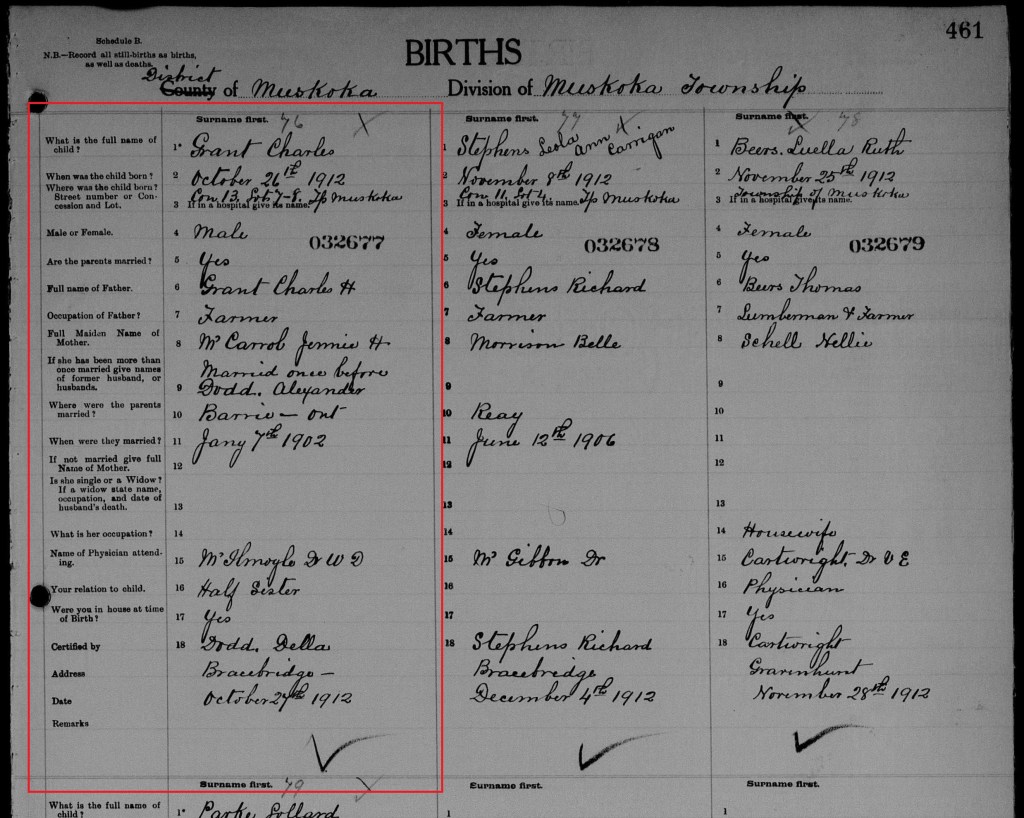 461
Schedule B.
N.B.—Record all still-births as births,
as well as deaths.
BIRTHS
District
County of Muskoka Division of Muskoka Township
Surname first. 76 X Surname first. 77 X Surname first. X 78
What is the full name of child? 1* Grant Charles 1 Stephens Leola Ann Carrigan 1 Beers. Luella Ruth
When was the child born? 2 October 26th 1912 2 November 8th 1912 2 November 25th 1912
Where was the child born? Street number or Concession and Lot. 3 Con 13, Lots 7-8. Tp Muskoka 3 Con 11, Lot 4, Tp Muskoka 3 Township of Muskoka
If in a hospital give its name. If in a hospital give its name. If in a hospital give its name.
Male or Female. 4 Male 4 Female 4 Female
032677 032678 032679
Are the parents married? 5 Yes 5 Yes 5 Yes
Full name of Father. 6 Grant Charles H 6 Stephens Richard 6 Beers Thomas
Occupation of Father? 7 Farmer 7 Farmer 7 Lumberman & Farmer
Full Maiden Name of Mother. 8 Mc Carrol Jennie H 8 Morrison Belle 8 Schell Nellie
If she has been more than once married give names of former husband, or husbands. 9 Married once before Dodd. Alexander 9 9
Where were the parents married? 10 Barrie — Ont 10 Reay 10
When were they married? 11 Jany 7th 1902 11 June 12th 1906 11
If not married give full Name of Mother. 12 12 12
Is she single or a Widow? If a widow state name, occupation, and date of husband's death. 13 13 13
What is her occupation? 14 14 14 Housewife
Name of Physician attending. 15 Dr W D 15 Mc Gibbon Dr 15 Cartwright. Dr V E
Your relation to child. 16 Half Sister 16 16 Physician
Were you in house at time of Birth? 17 Yes 17 17 Yes
Certified by 18 Dodd. Della 18 Stephens Richard 18 Cartwright
Address Bracebridge — Bracebridge Gravenhurst
Date October 27th 1912 December 4th 1912 November 28th 1912
Remarks
Surname first. 79 X Surname first. Surname first.
What is the full name of child? 1* Parke 1 1